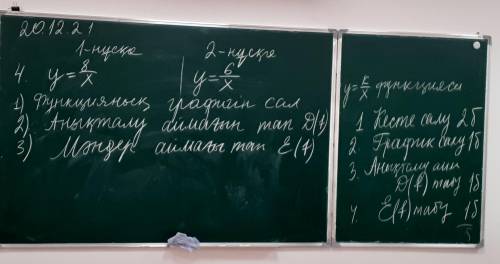 20.12.21
1-нұсқа 2-нұсқа
4. y=8/x y=6/x
1) Функцияның графигін сал
2) Анықталу аймағын тап D(f)
3) Мәндер аймағы тап E(f)
y=k/x функциясы
1 Кесте салу 2б
2. График салу 1б
3. Анықталу айм
D(f) табу 1б
4. E(f) табу 1б
5